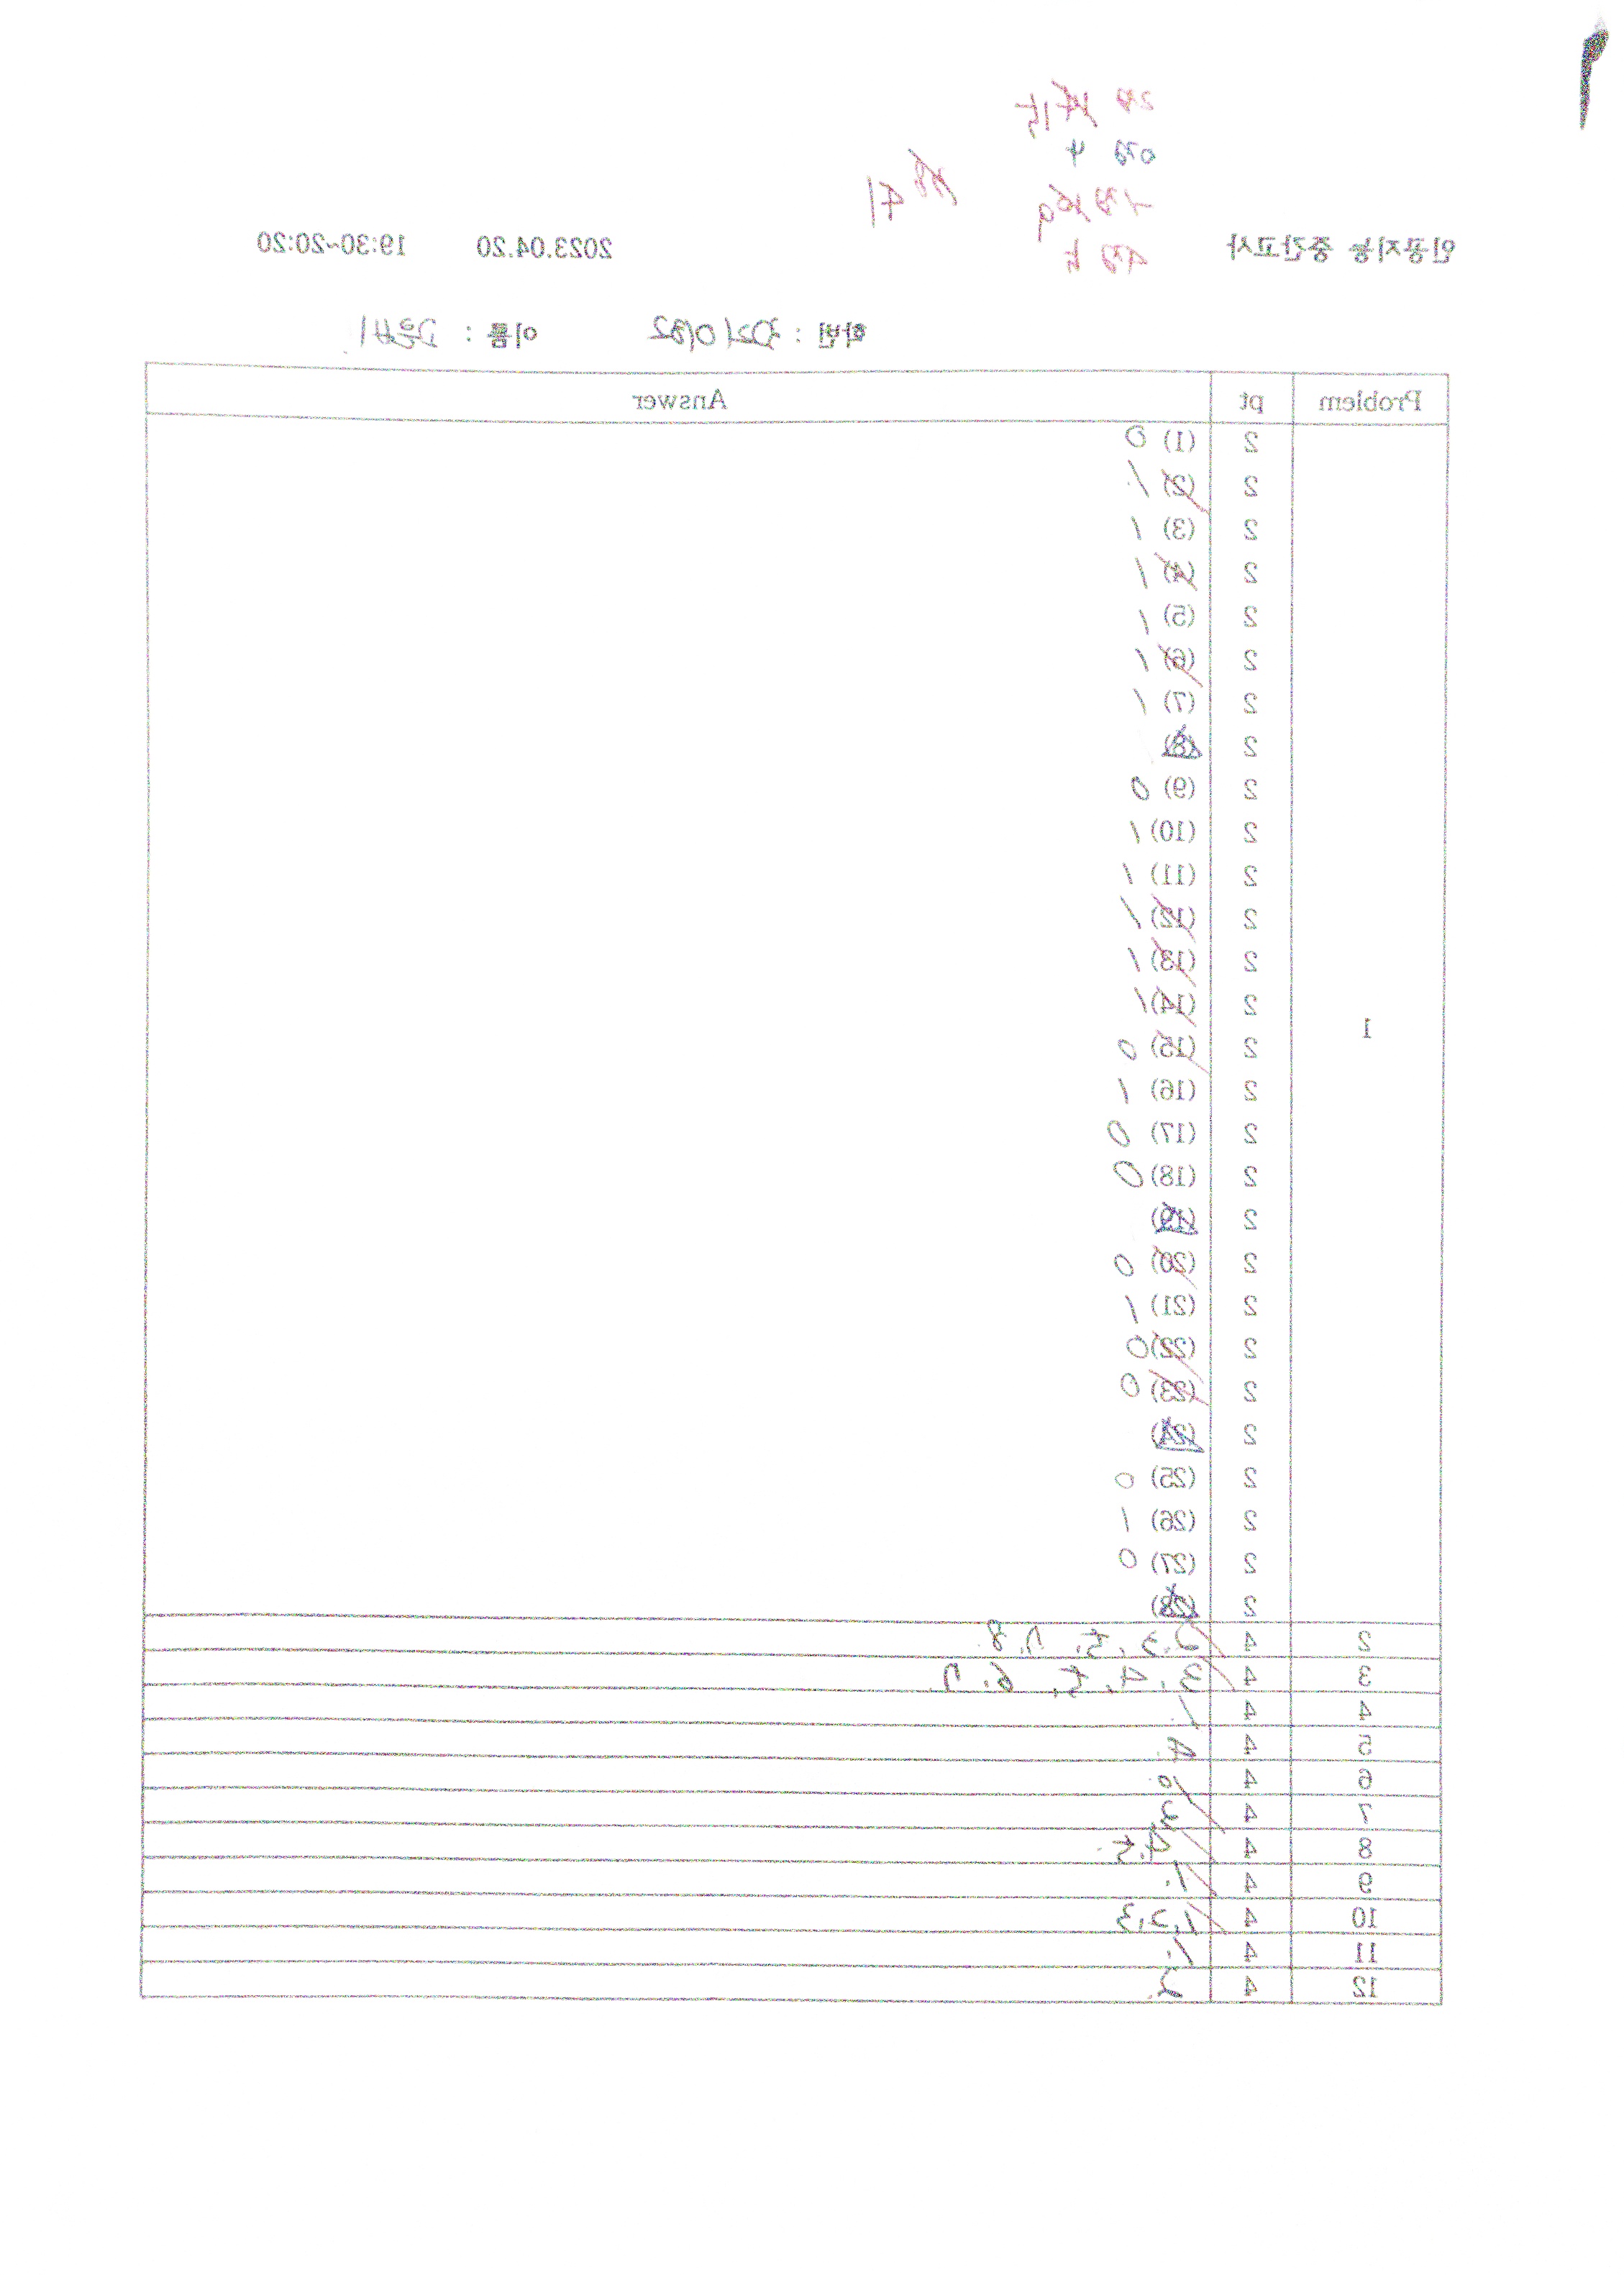 인공지능 중간고사 2023.04.20 19:30~20:20
41
학번 : 이름 :
Problem pt Answer
1
2 (1) 0
2 (2) 1
2 (3) 1
2 (4) 1
2 (5) 1
2 (6) 1
2 (7) 1
2 (8)
2 (9) 0
2 (10) 1
2 (11) 1
2 (12) 1
2 (13) 1
2 (14) 1
2 (15) 0
2 (16) 1
2 (17) 0
2 (18) 0
2 (19)
2 (20) 0
2 (21) 1
2 (22) 0
2 (23) 0
2 (24)
2 (25) 0
2 (26) 1
2 (27) 0
2 (28)
2 4 2.3.5.7.8
3 4 3.4.5.6.7
4 4 1.
5 4 4.
6 4 0.
7 4 3
8 4 4.5.
9 4 1.
10 4 1,2,3
11 4 1.
12 4 2.